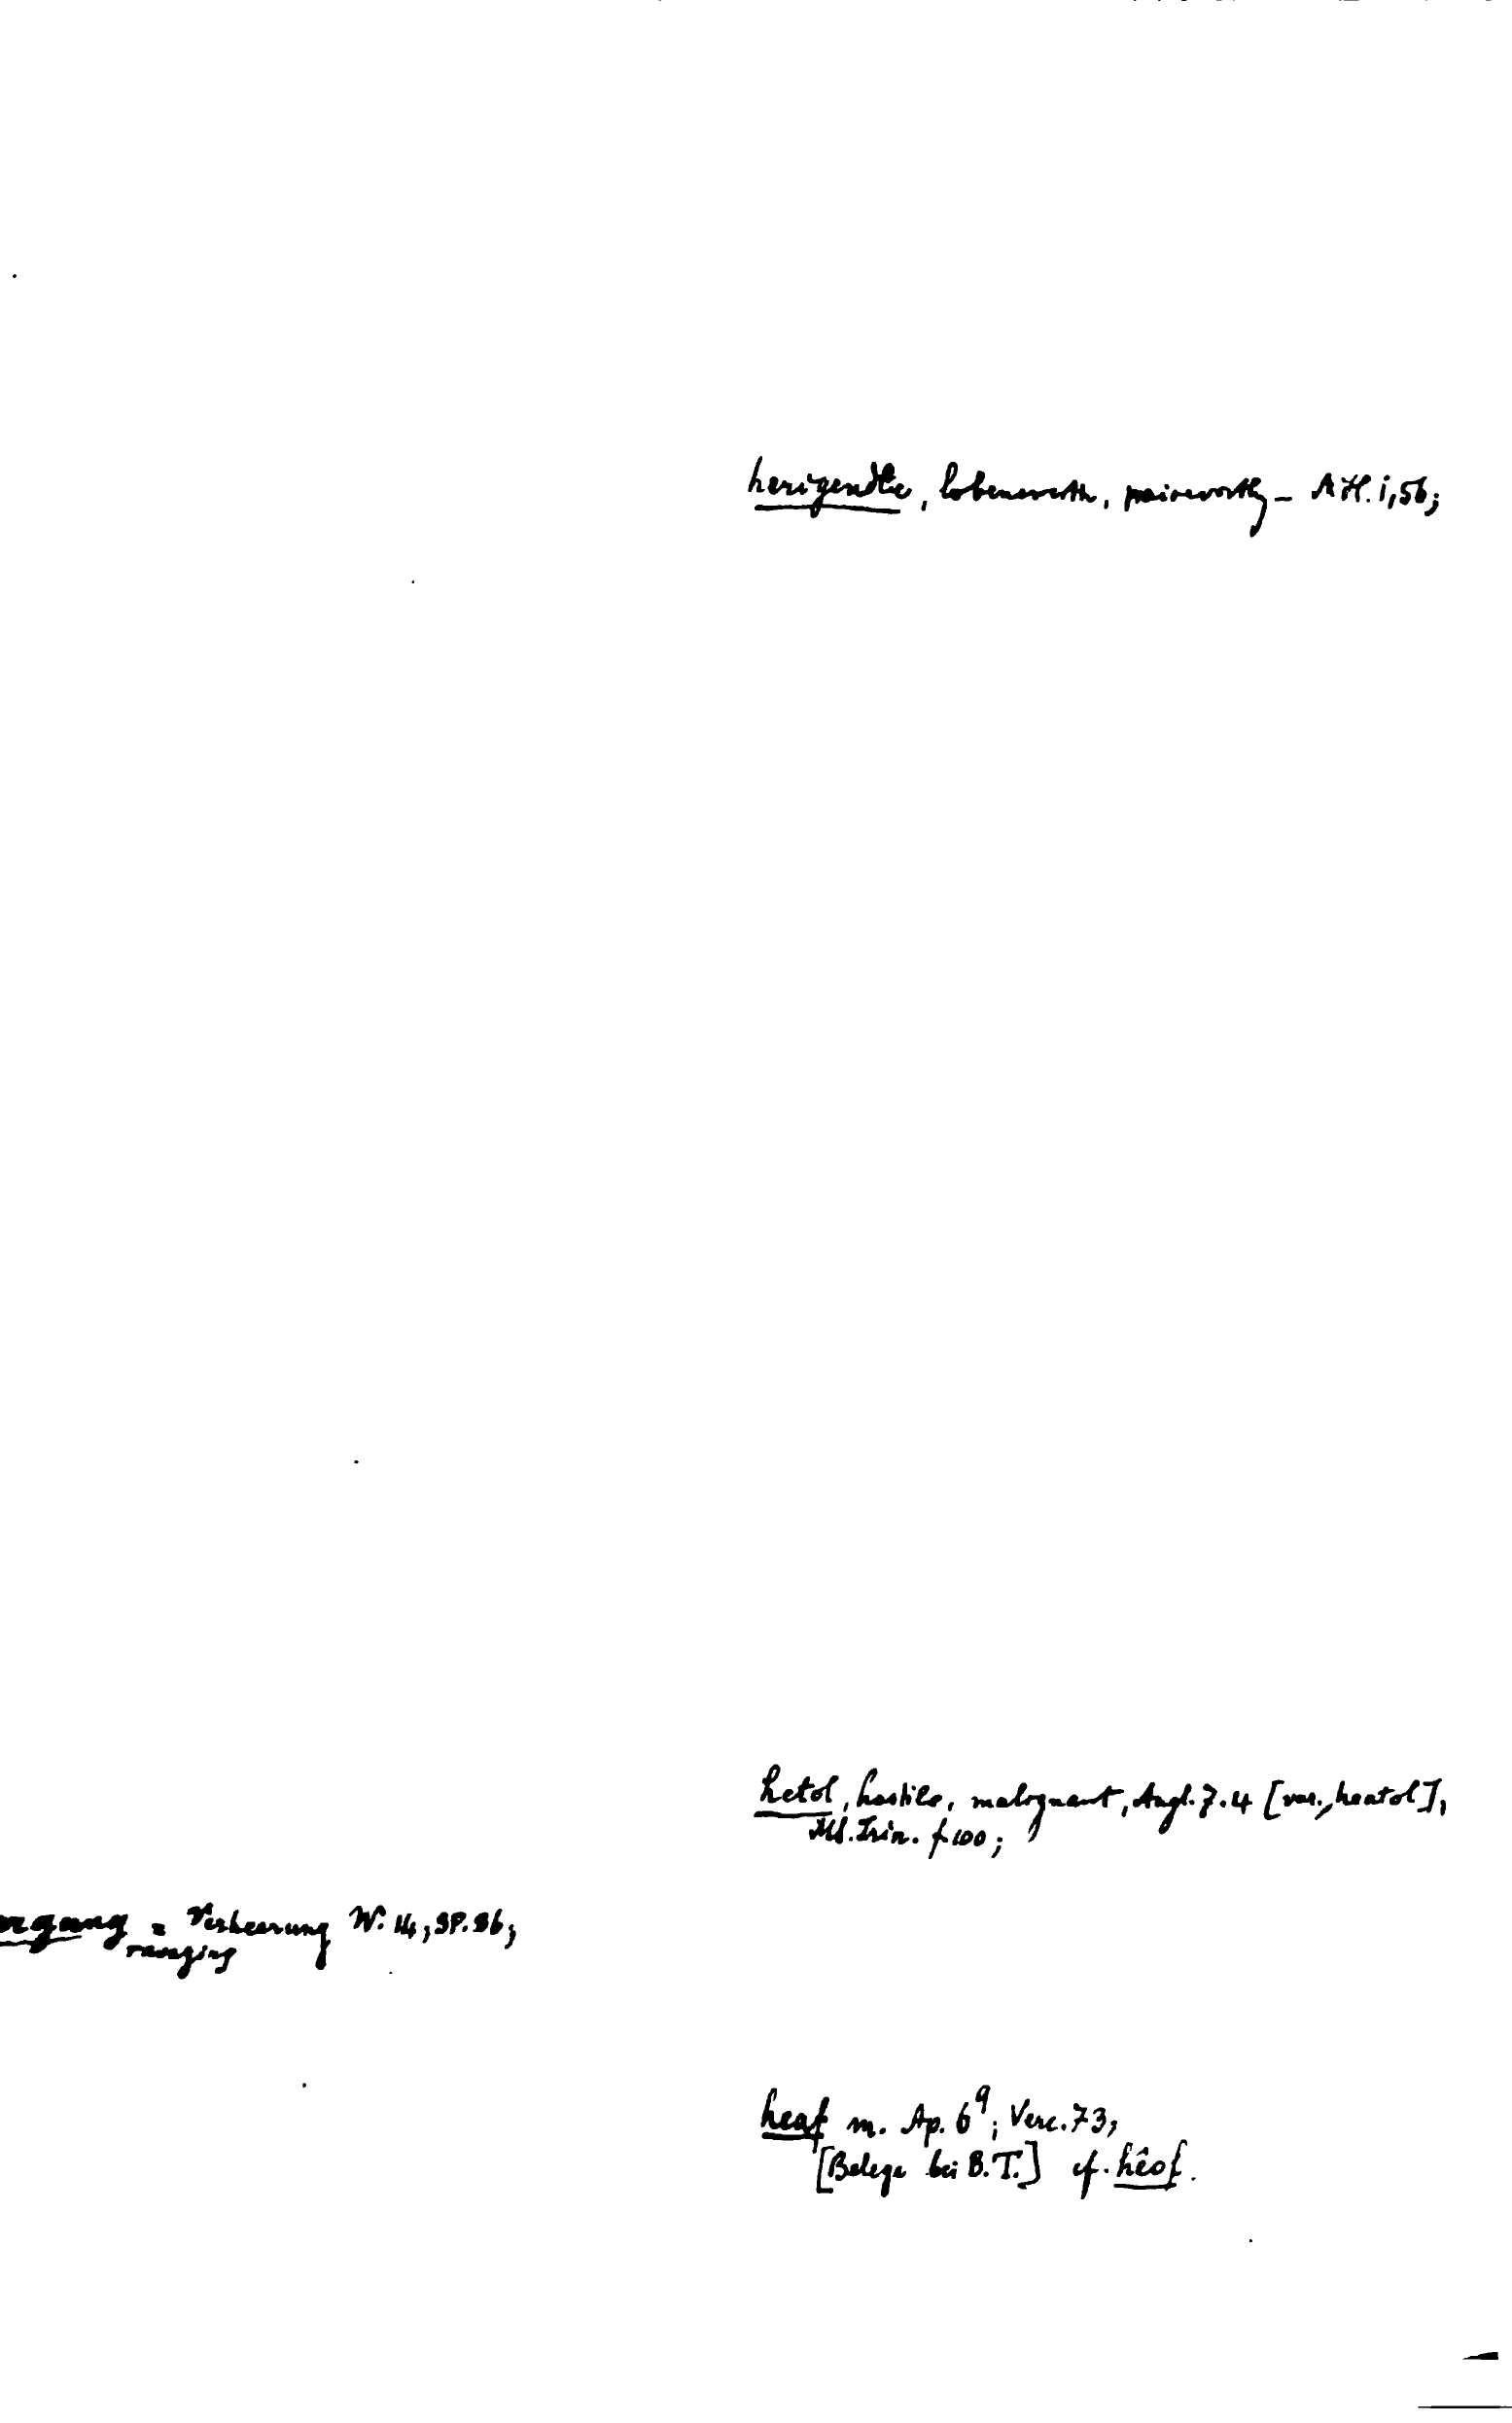 herigendlic, lobenswerth, praiseworthy – AH. i, 56;
hetol, hostile, malignant, Angl. 7. 4 [var., heatol],
MS. Trin. f. 100;
= Verheerung W. 14, SP. 56;
ravaging
heaf m. Ap. 6⁹; Verc. 73,
[Belege bei B.T.] cf. hêof.